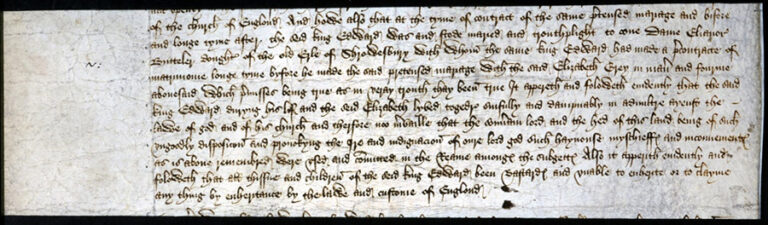 of the church of Englond. And howe also that at the tyme of contract of the same p̄tensed mariage and bifore
and longe tyme after the seid king Edward was and stode maried and trouthplight to oone Dame Elianor
Buteler dought' of the old Erle of Shrowesbury with whom the same king Edward had made a p̄contracte of
matrimonie longe tyme byfore he made the said pretensed mariage with the said Elizabeth Grey in man' and fourme
abovesaid. Which p̄misses being true as in veray trouth thay been true It apperith and foloweth evidently that the said
king Edward duryng his lif and the seid Elizabeth lyved togedir sinfully and dampnably in adultre ayenst the
lawe of god and of his church and therfore noo m'vaille that the sov'ain lord and the hed of this land being of such
ungoodly disposicion and provokyng the ire and indignacion of oure lord god such haynouse myscheffs and inconvenients
as is above remembred were used and comitted in the Reame amongs the subgetts. Also it apperith evidently and
foloweth that all thissue and children of the seid king Edward been Bastards and unable to enherite or to clayme
any thing by enheritance by the lawe and custome of Englond